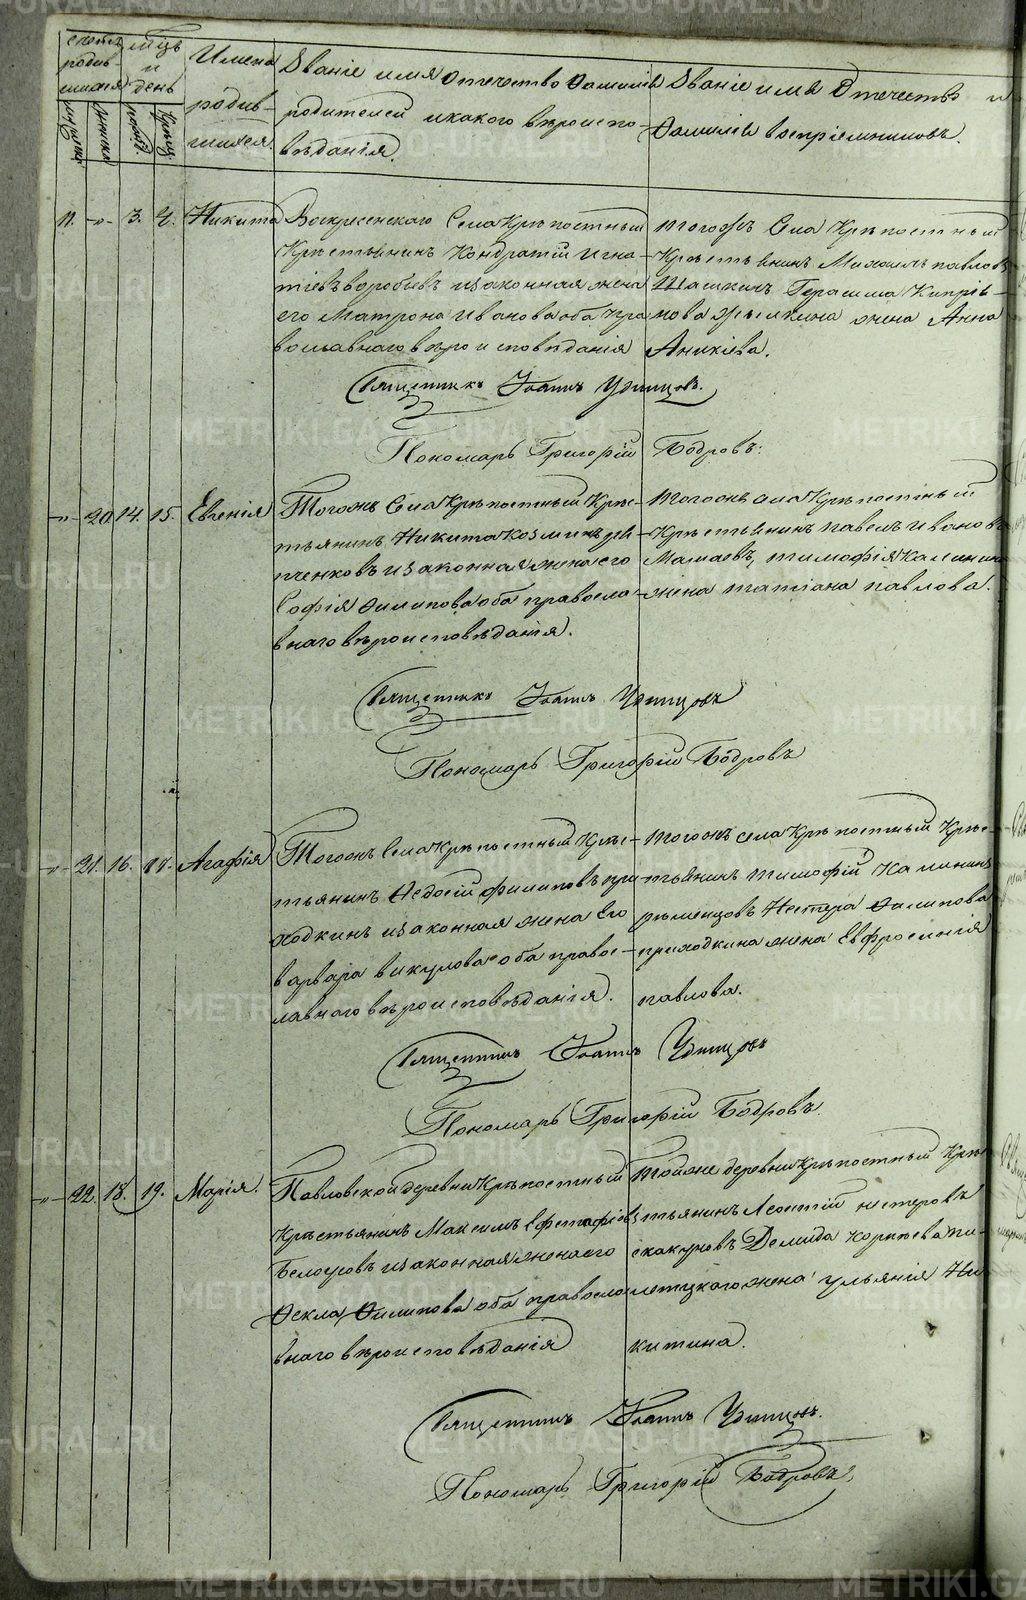 METRIKI.GASO-URAL.RU
счетъ родившихся
мужеска
женска
мѣць и день
рожд:
крещ:
Имена родившихся.
Званіе имя Отечество Фамилія
родителей и какого вѣроиспо-
вѣданія.
Званіе имя Отечество и
Фамилія воспріемниковъ.
11. -"- 3. 4. Никита
Воскресенскаго Села Крѣпостный
Крестьянинъ Кондратій Игна-
тіевъ воробьевъ и законная жена
его Матрона Иванова оба пра
вославнаго вѣроисповѣданія
тогожъ Села Крѣпостный
Крестьянинъ Михаилъ павловъ
Герасима Кипрія-
нова жена Анна
Аникіева.
Священникъ Іоаннъ Удинцовъ.
Пономарь Григорій Бодровъ:
-"- 20. 14. 15. Евгенія
Тогожъ Села Крѣпостный Крес-
тьянинъ Никита Козминъ
и законная жена его
Софія Филипова оба правосла-
внаго вѣроисповѣданія.
тогожъ села Крѣпостный
Крестьянинъ павелъ Ивановъ
Мамаевъ, тимофія Калинина
жена татіана павлова.
Священникъ Іоаннъ Удинцовъ
Пономарь Григорій Бодровъ
-"- 21. 16. 17. Агафія
Тогожъ Села Крѣпостный Крес-
тьянинъ Федосій филиповъ при
ходкинъ и законная жена его
варвара викулова оба правос-
лавнаго вѣроисповѣданія.
тогожъ села Крѣпостный Крес-
тьянинъ тимофій Калининъ
Нестера Филипова
приходкина жена Евфросинія
павлова.
Священникъ Іоаннъ Удинцовъ
Пономарь Григорій Бодровъ.
-"- 22. 18. 19. Марія.
Павловской деревни Крѣпостный
Крестьянинъ Максимъ
Белоусовъ и законная жена его
Фекла Филипова оба правосла
внаго вѣроисповѣданія
тойже деревни Крѣпостный Крес
тьянинъ Леонтій нестеровъ
скакуновъ Демида Корнѣева пи-
летцкаго жена ульянія Ни
китина.
Священникъ Іоаннъ Удинцовъ.
Пономарь Григорій Бодровъ